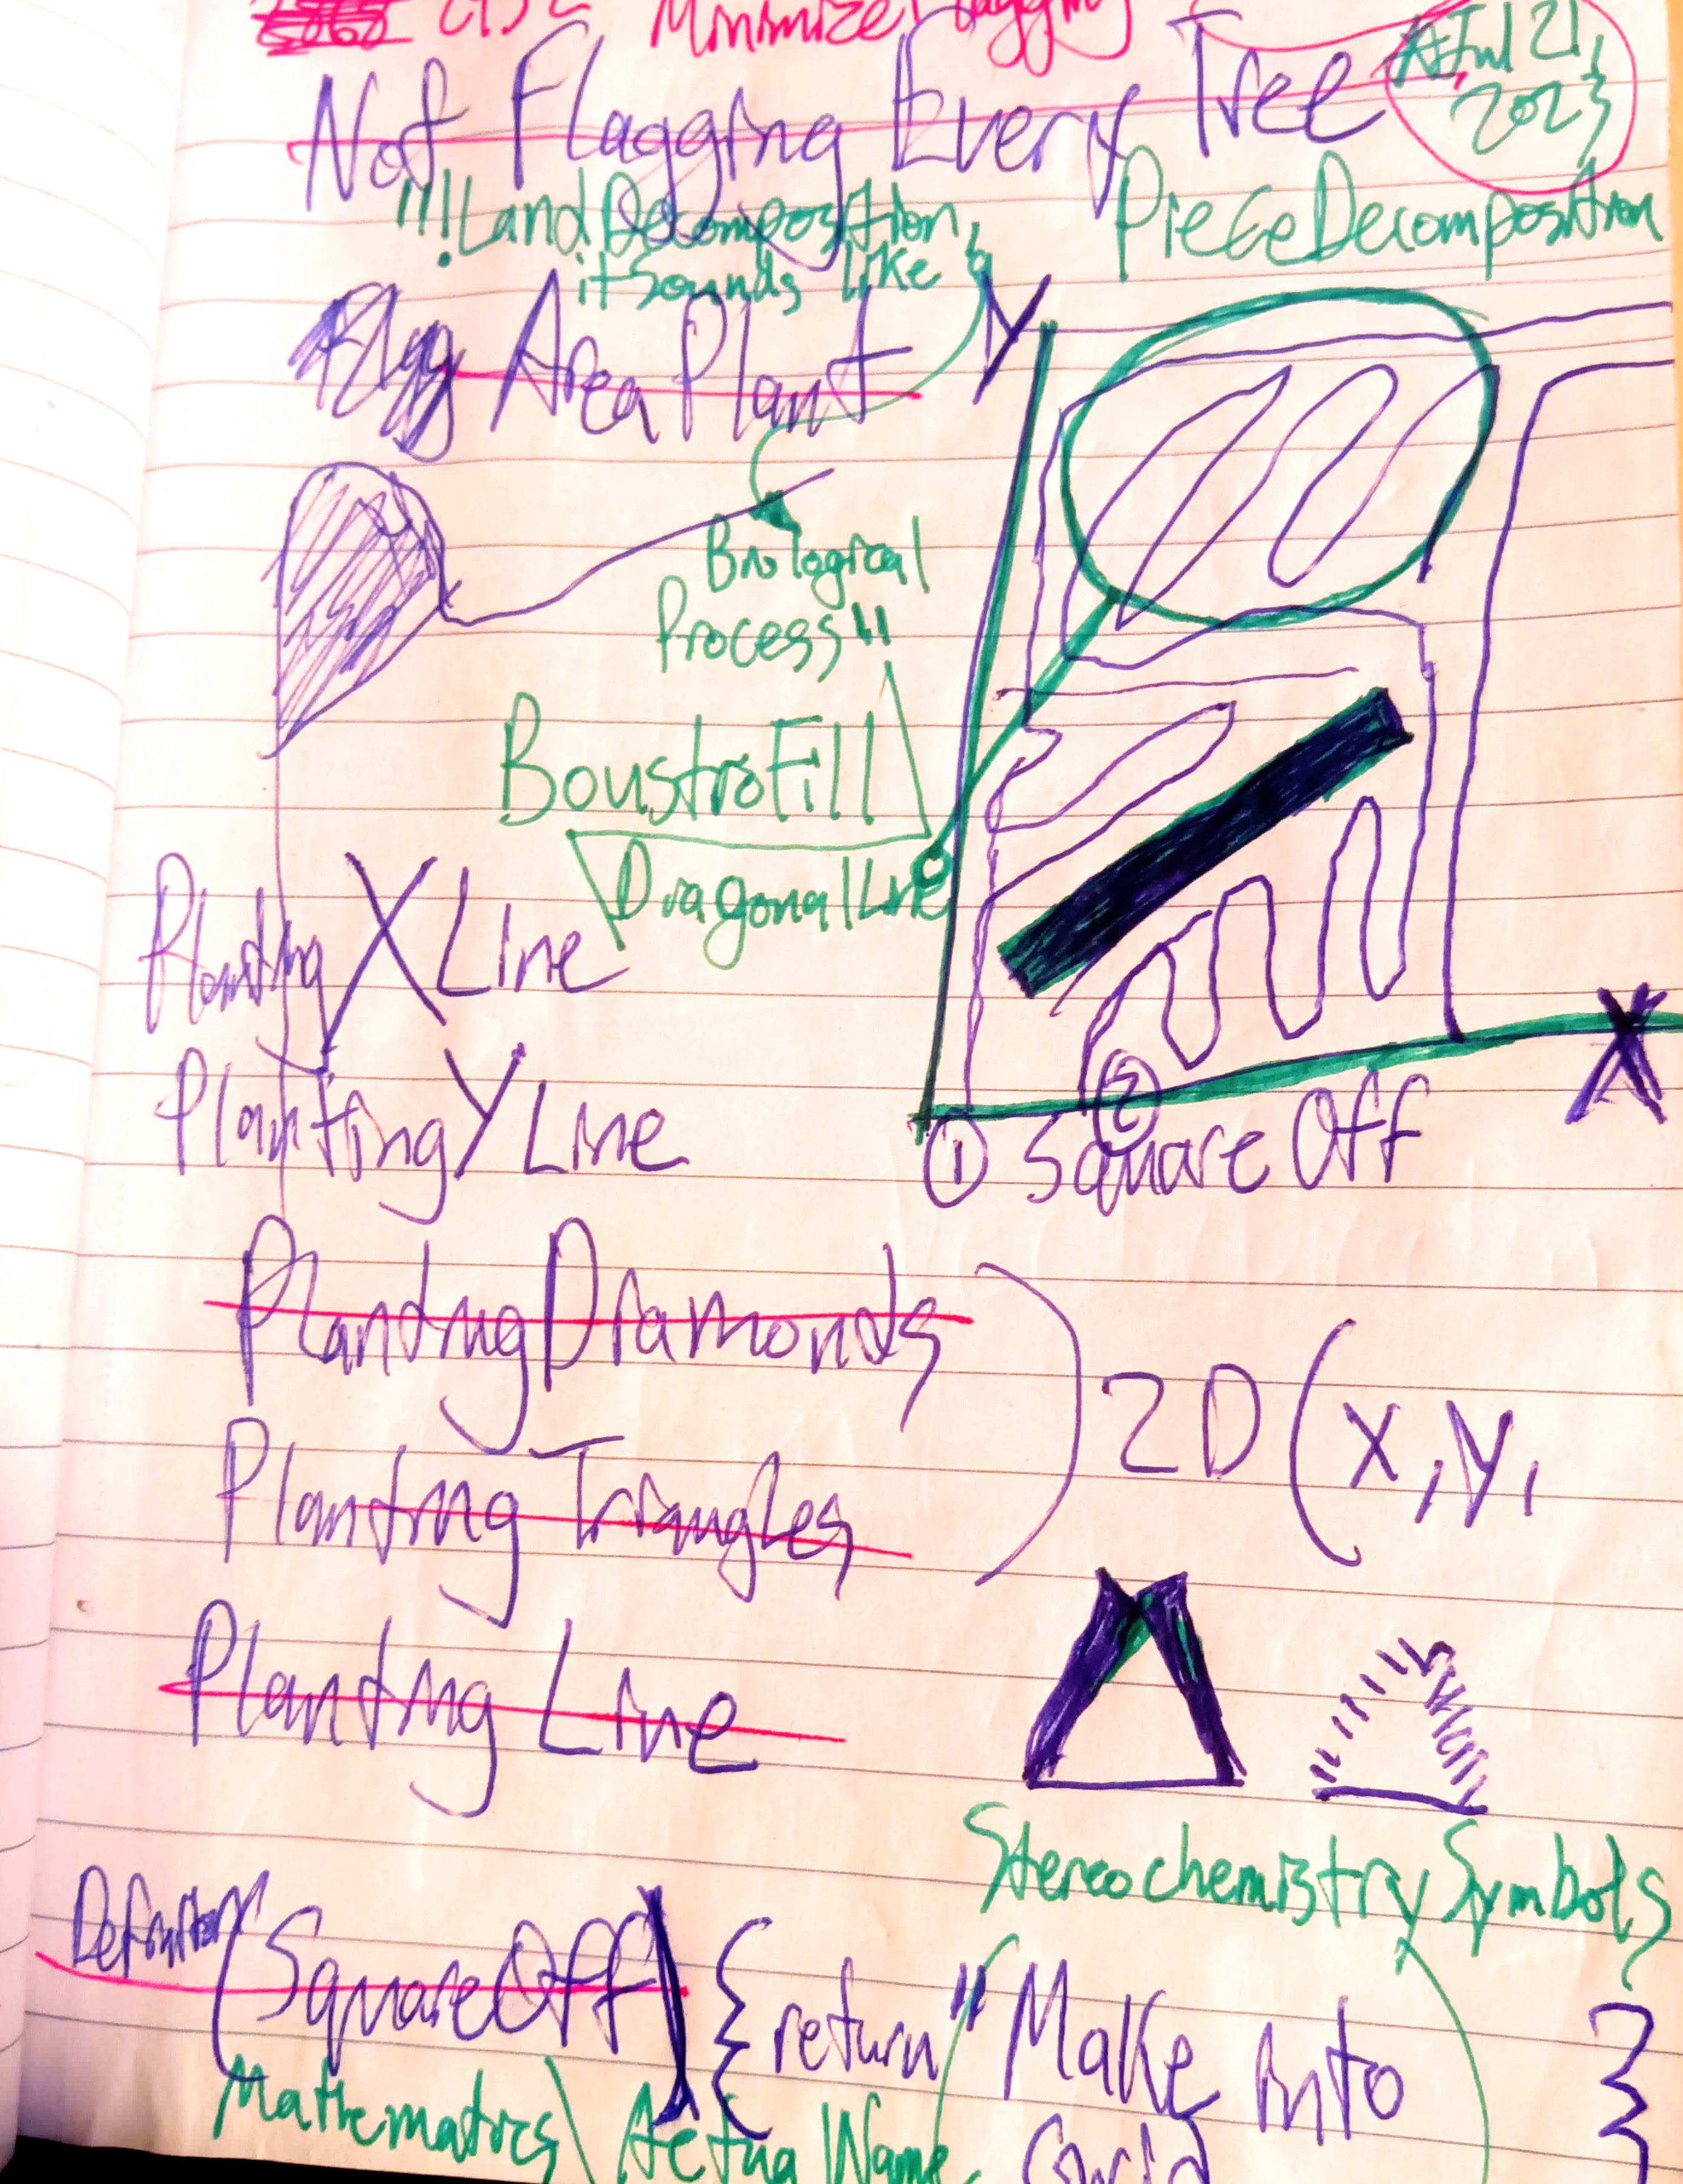 Minimize Flagging
Not Flagging Every Tree
Jul 21,
2023
!!! Land Decomposition,
it Sounds like a
Piece Decomposition
Flag Area Plant
Y
Biological
Process!!
BoustroFill
Diagonal Line
Planting X Line
X
Planting Y Line
① ② Square Off
Planting Diamonds
Planting Triangles
) 2D (x, y,
Planting Line
Stereochemistry Symbols
Definition (Square Off) { return " Make into }
Mathematics \ Actual Name
Grid